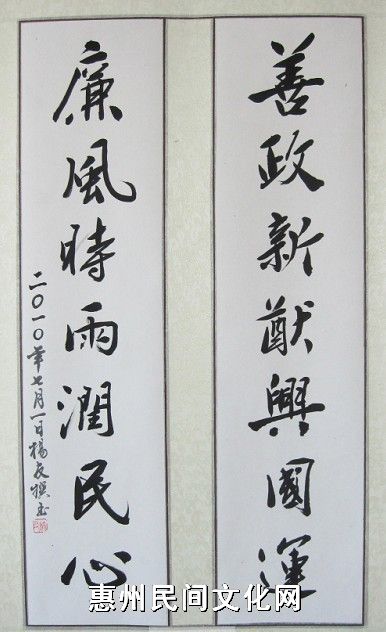 善政新猷興國運
廉風時雨潤民心
二〇一〇年七月一日楊友
惠州民间文化网